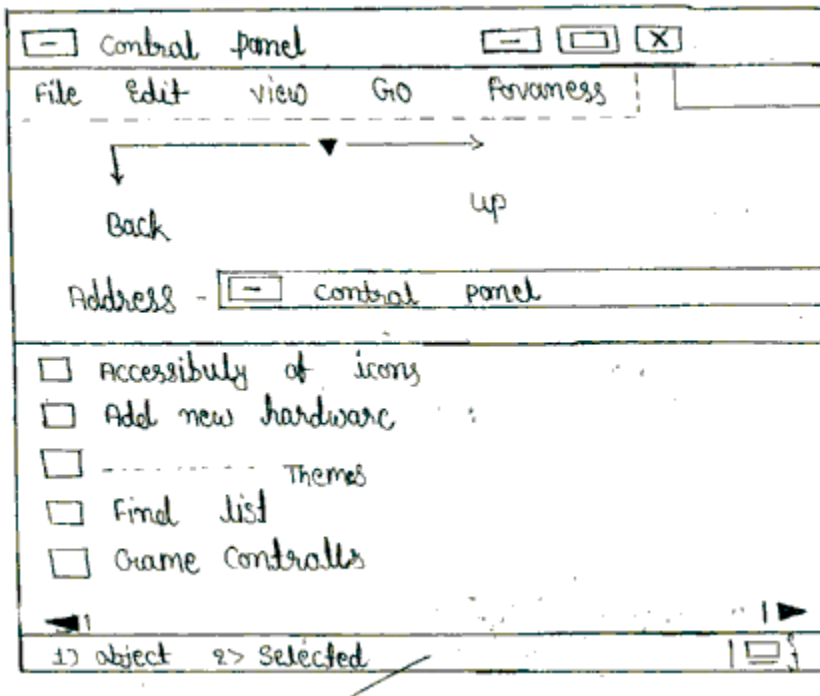 Contral panel
File Edit view Go Fovaness
Back up
Address - contral panel
Accessibuly of icons
Add new hardware
---------- Themes
Find list
Game Contralls
1) object 2> Selected